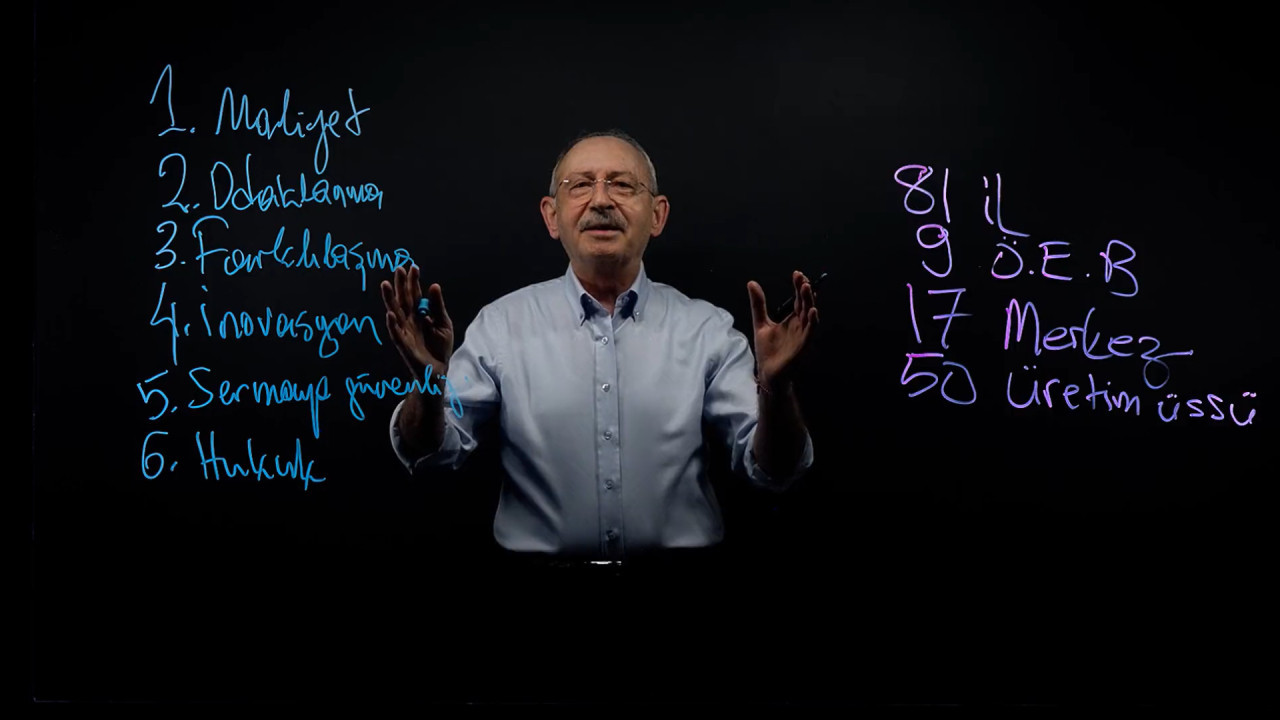 1. Maliyet
2. Odaklanma
3. Farklılaşma
4. İnovasyon
5. Sermaye güvenliği
6. Hukuk
81 İL
9 Ö.E.B
17 Merkez
50 Üretim üssü